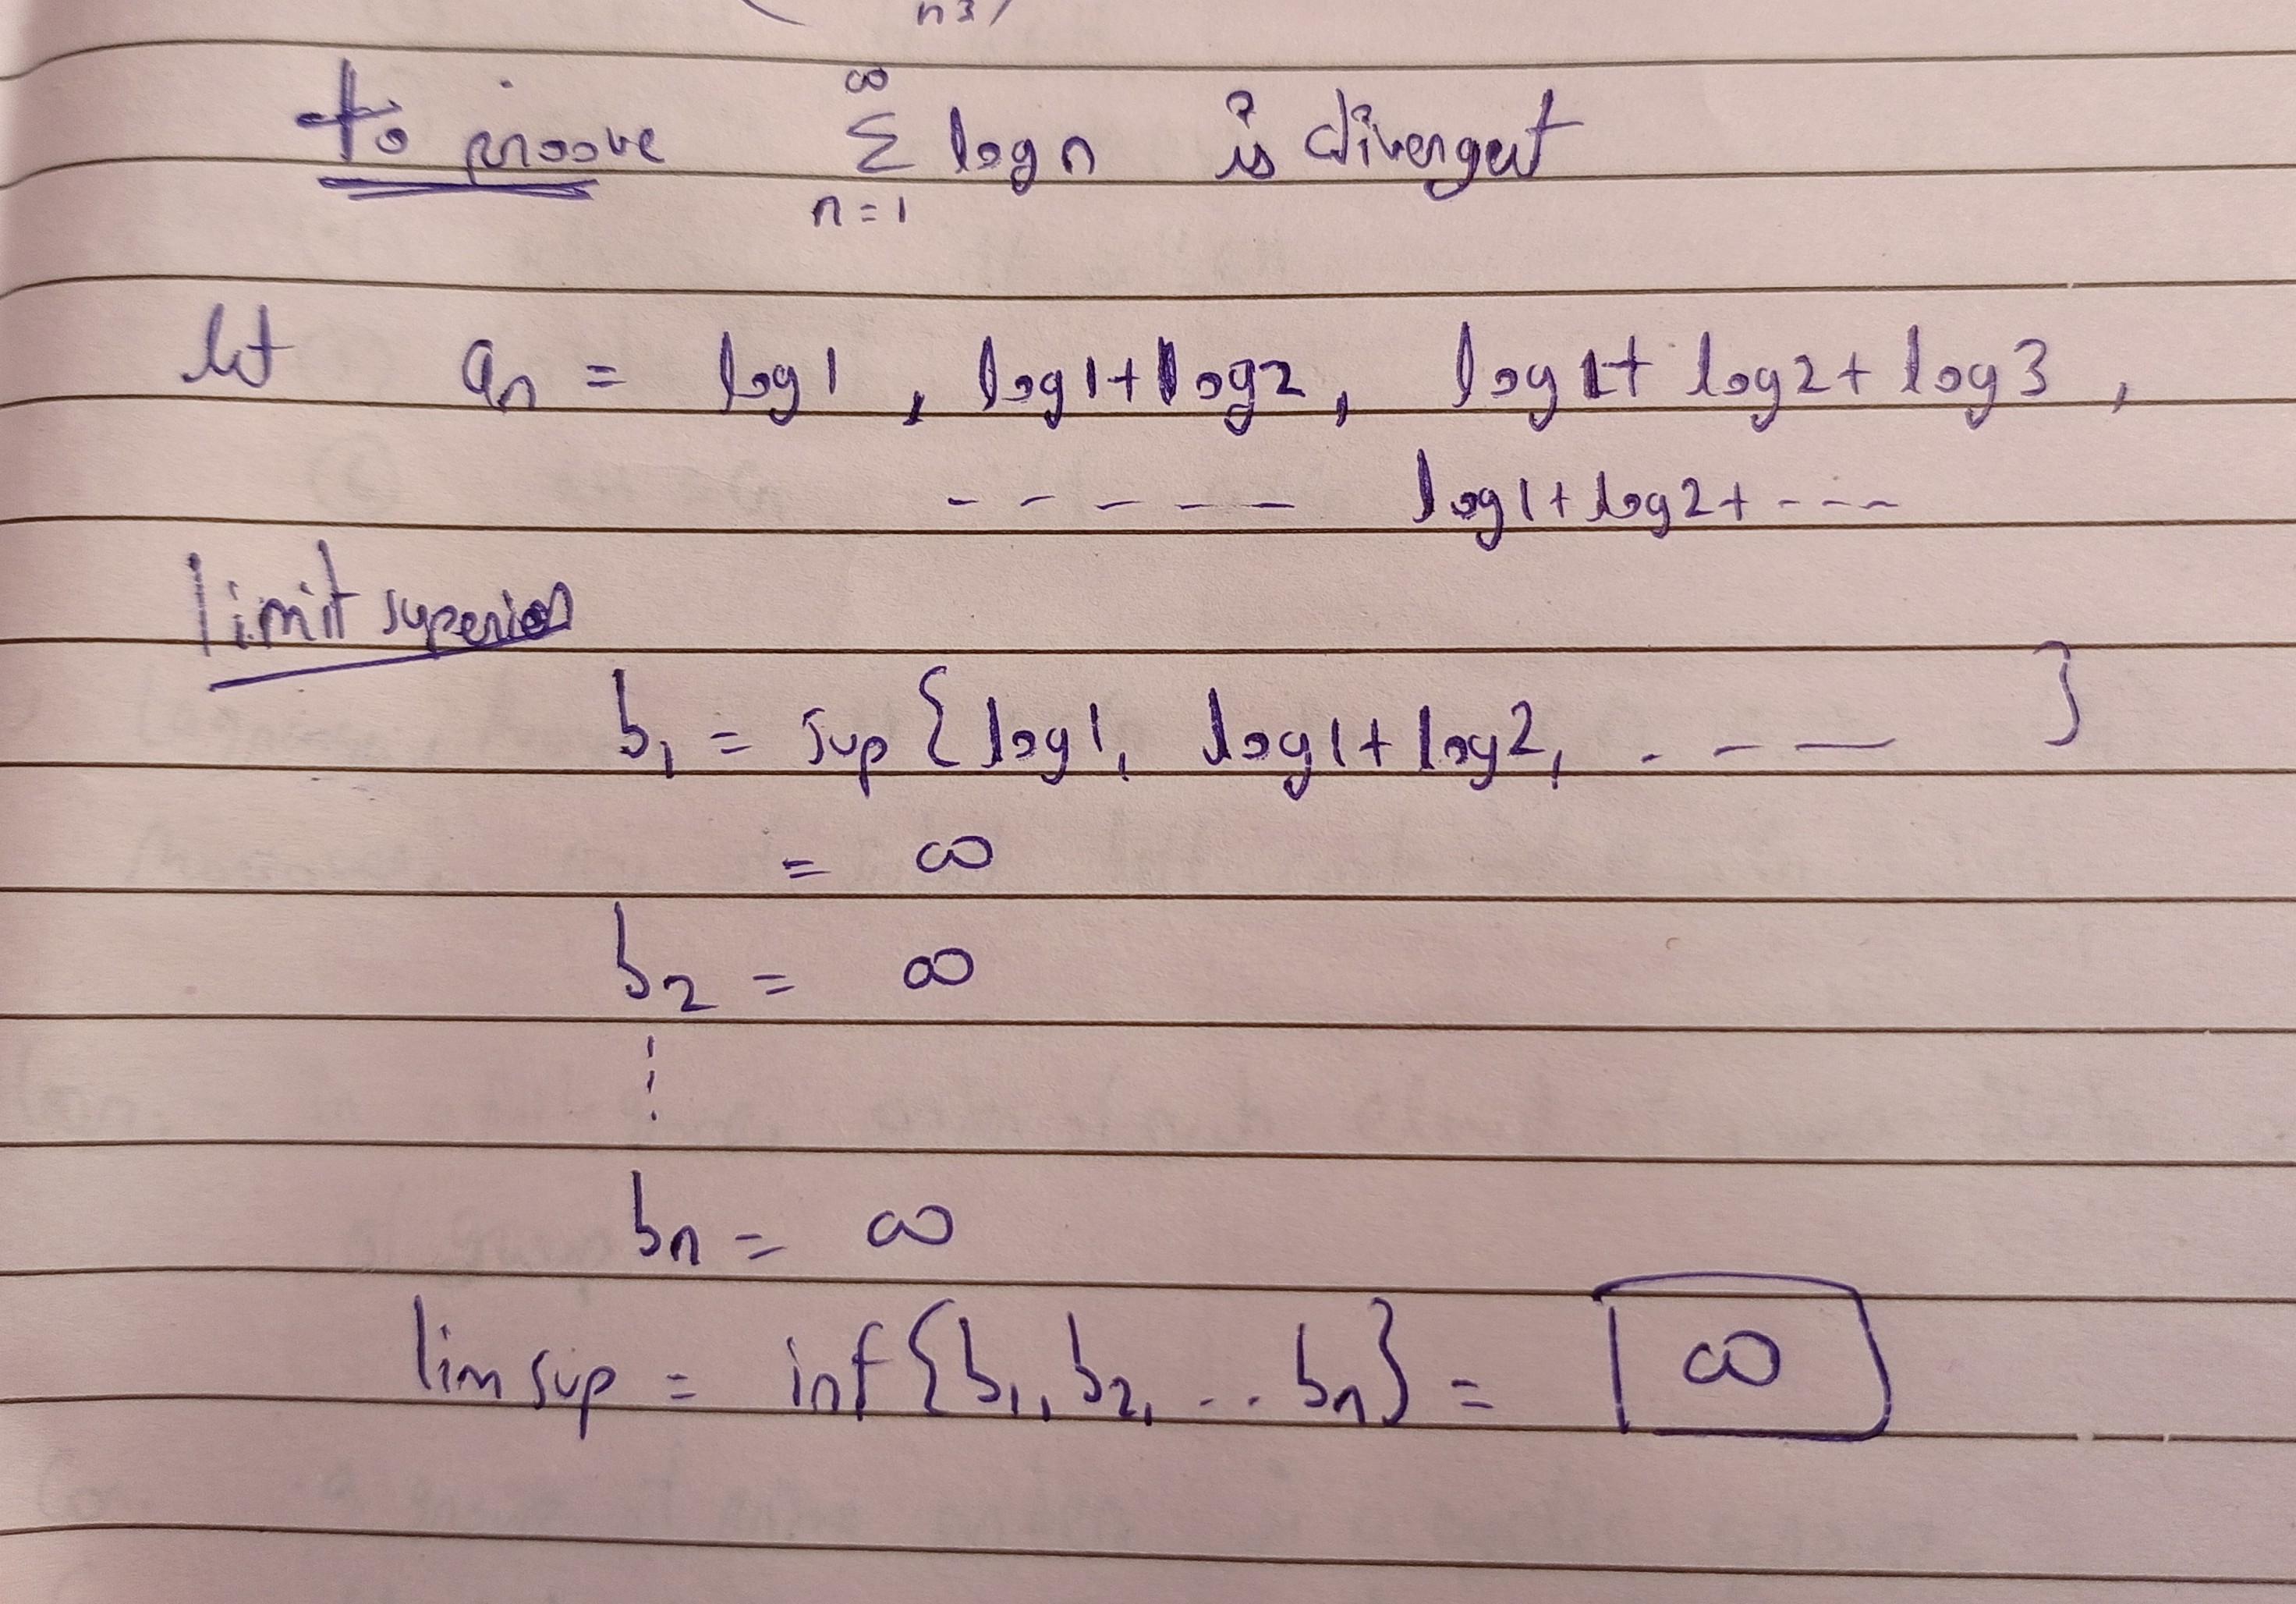 n3)
to proove ∞ Σ n=1 log n is divergent
let an = log1 , log1+log2 , log1+ log2+ log3 ,
- - - - - log1+log2+ ---
limit superior
b1 = sup { log1, log1+log2, . - — }
= ∞
b2 = ∞
⋮
bn = ∞
lim sup = inf {b1, b2, ... bn} = ∞